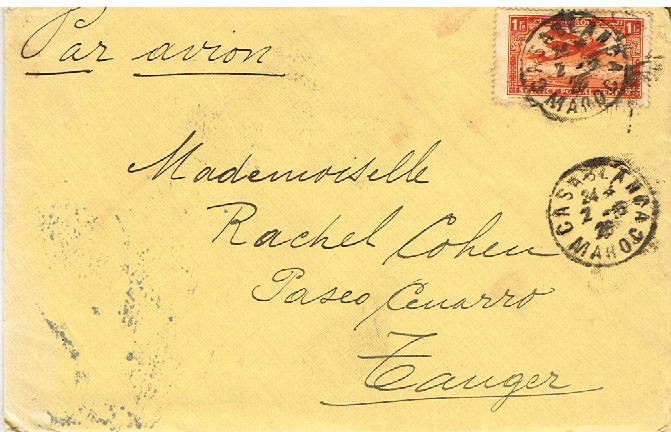 Par avion
1F MAROC 1F
CASABLANCA
MAROC
Mademoiselle
Rachel Cohen
Paseo Cenarro
Tanger
CASABLANCA
24
2 -
25
MAROC